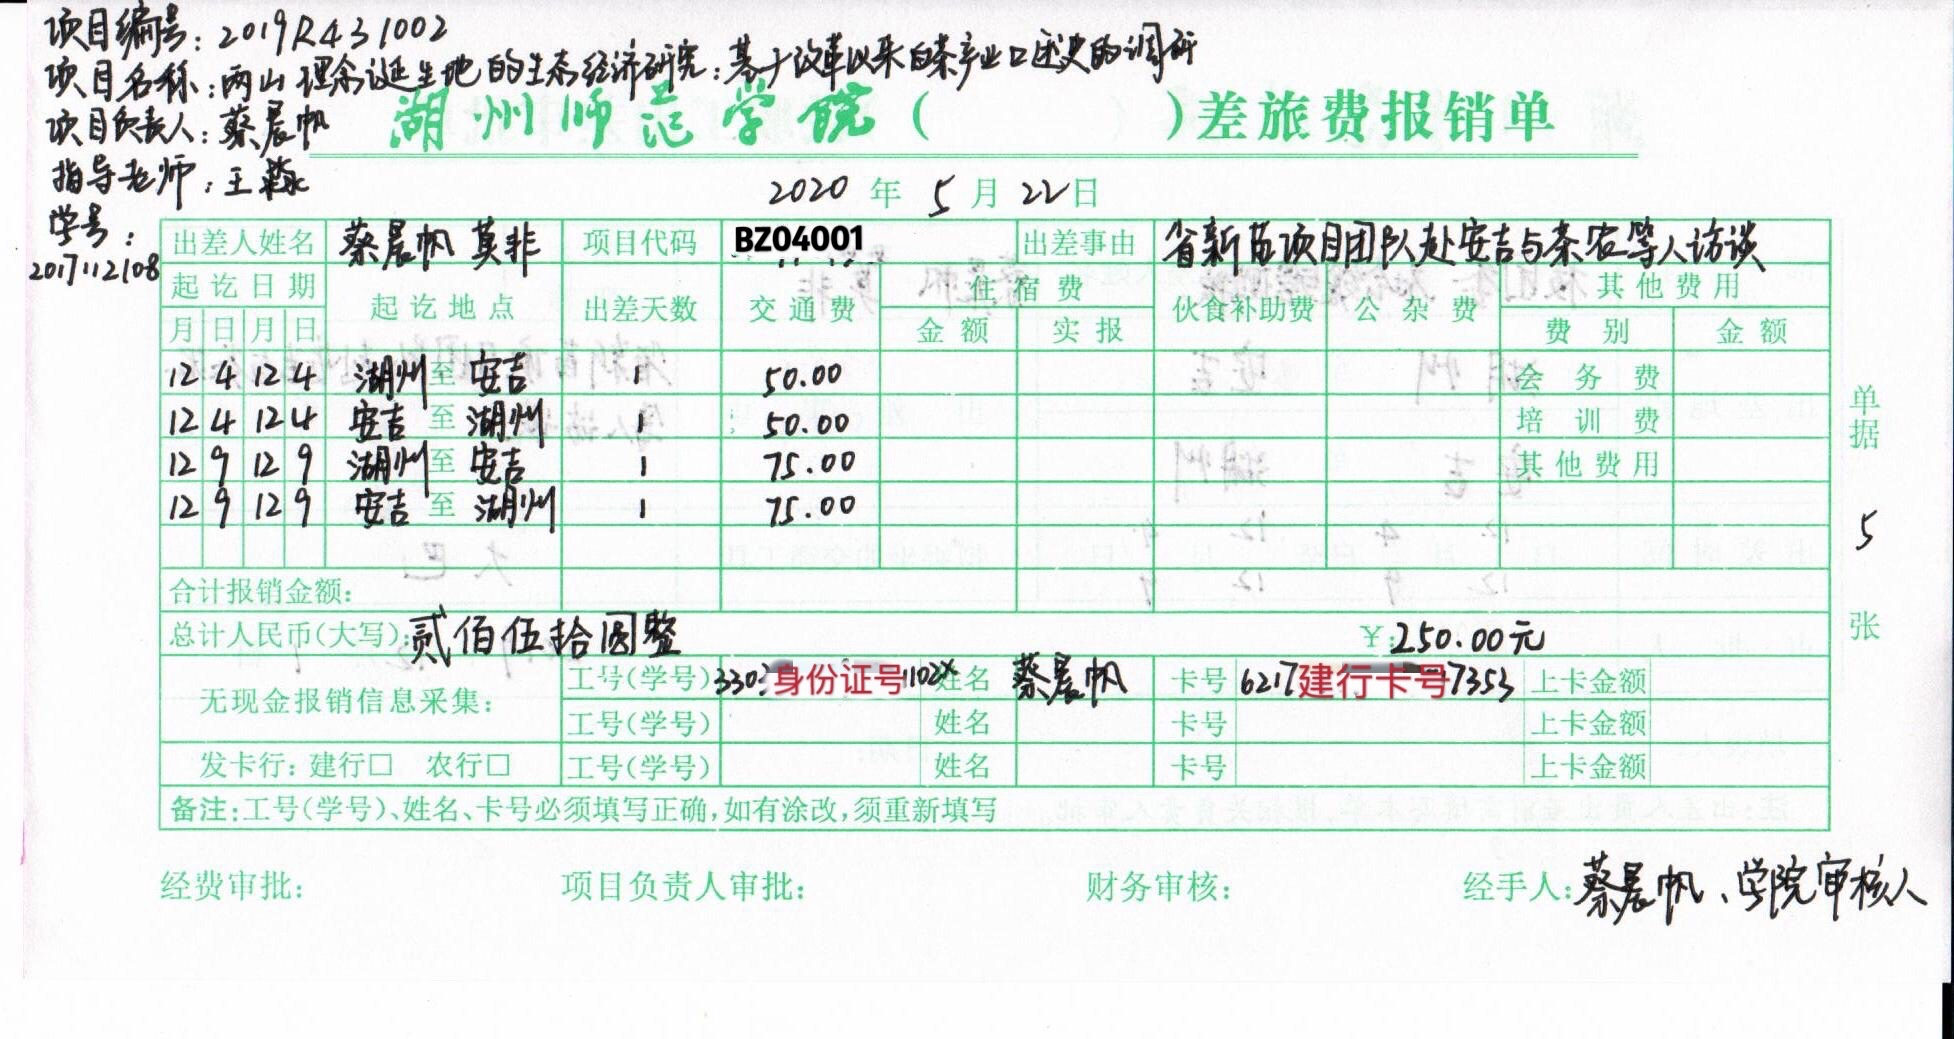 项目编号：2019R431002
项目名称：两山理念诞生地的生态经济研究：基于改革以来白茶产业口述史的调研
项目负责人：蔡晨帆
湖州师范学院（ ）差旅费报销单
指导老师：王淼
2020 年 5 月 22 日
学号：
2017112108
出差人姓名 蔡晨帆 莫非 项目代码 BZ04001 出差事由 省新苗项目团队赴安吉与茶农等人访谈
起讫日期 起讫地点 出差天数 交通费 住宿费 伙食补助费 公杂费 其他费用
月 日 月 日 金额 实报 费别 金额
12 4 12 4 湖州 至 安吉 1 50.00 会务费
12 4 12 4 安吉 至 湖州 1 50.00 培训费
12 9 12 9 湖州 至 安吉 1 75.00 其他费用
12 9 12 9 安吉 至 湖州 1 75.00
单据 5 张
合计报销金额：
总计人民币(大写)：贰佰伍拾圆整 ¥：250.00元
无现金报销信息采集：
工号(学号) 330 身份证号 1102X 姓名 蔡晨帆 卡号 6217 建行卡号 7353 上卡金额
工号(学号) 姓名 卡号 上卡金额
发卡行：建行□ 农行□ 工号(学号) 姓名 卡号 上卡金额
备注：工号(学号)、姓名、卡号必须填写正确，如有涂改，须重新填写
经费审批： 项目负责人审批： 财务审核： 经手人：蔡晨帆、学院审核人